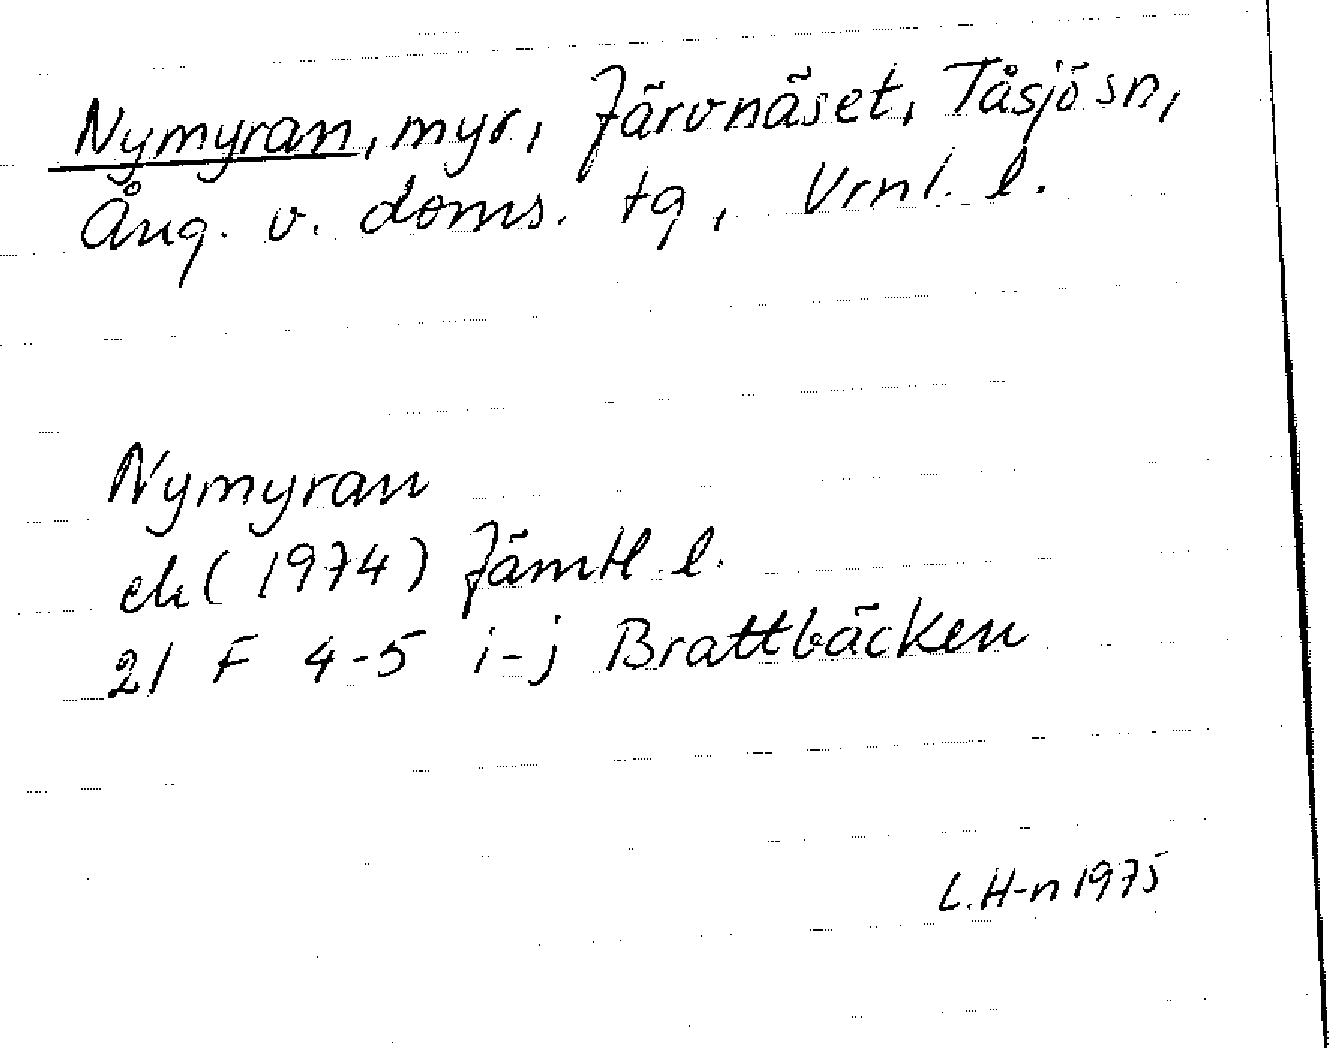 Nymyran, myr, Järvnäset, Tåsjö sn,
Ång. v. doms. tg, Vrnl. l.
Nymyran
ek (1974) Jämtl. l.
21 F 4-5 i-j Brattbäcken
L. H-n 1975